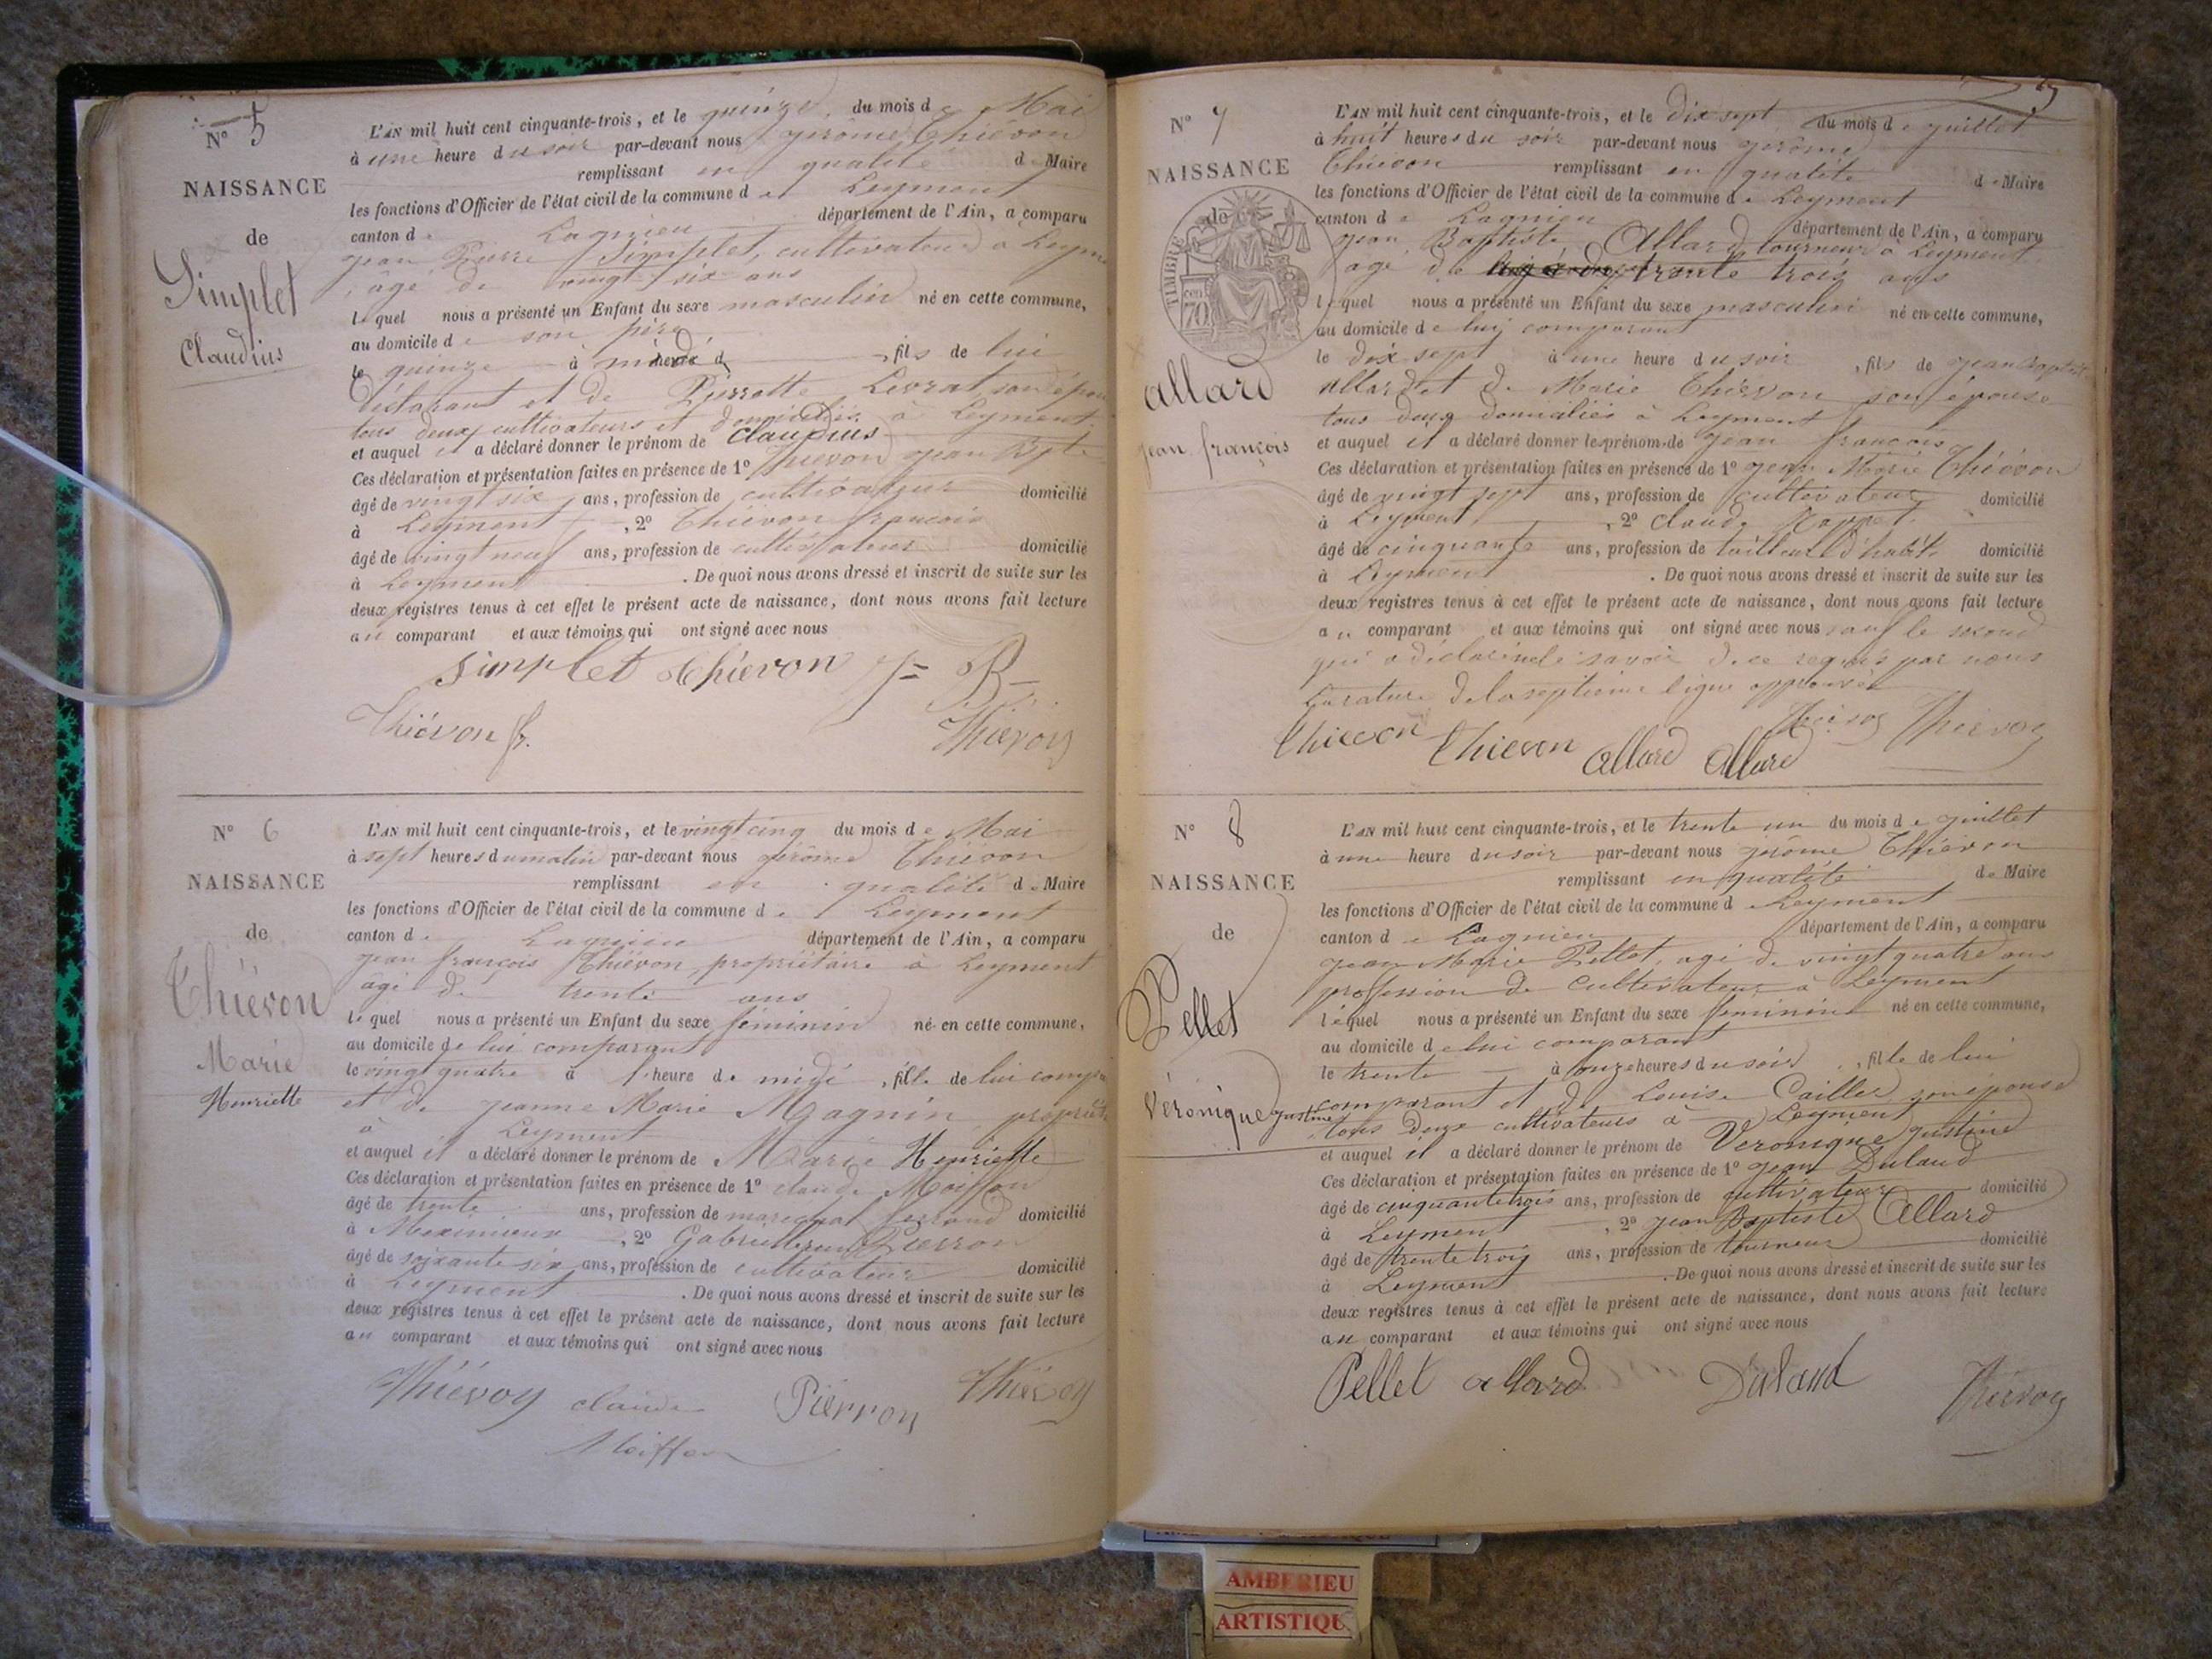 N° 5
NAISSANCE
de
Simplet
Claudius
L'AN mil huit cent cinquante-trois, et le quinze du mois de Mai
à une heure du soir par-devant nous jérôme Thiévon
remplissant en qualité de Maire
les fonctions d'Officier de l'état civil de la commune de Leyment
canton de Lagnieu département de l'Ain, a comparu
jean Pierre Simplet, cultivateur à Leyment
âgé de vingt six ans
lequel nous a présenté un Enfant du sexe masculin né en cette commune,
au domicile de son père
le quinze à midi, fils de lui
déclarant et de Pierrette Levrat, son épouse
tous deux cultivateurs et domiciliés à Leyment
et auquel il a déclaré donner le prénom de Claudius
Ces déclaration et présentation faites en présence de 1° Thievon jean Bpte
âgé de vingt six ans, profession de cultivateur domicilié
à Leyment, 2° Thiévon françois
âgé de vingt neuf ans, profession de cultivateur domicilié
à Leyment. De quoi nous avons dressé et inscrit de suite sur les
deux registres tenus à cet effet le présent acte de naissance, dont nous avons fait lecture
au comparant et aux témoins qui ont signé avec nous
Simplet thievon j= B=
Thiévon fr. Thiévon
N° 6
NAISSANCE
de
Thiévon
Marie
Henriette
L'AN mil huit cent cinquante-trois, et le vingt cinq du mois de Mai
à sept heures du matin par-devant nous jérôme Thiévon
remplissant en qualité de Maire
les fonctions d'Officier de l'état civil de la commune de Leyment
canton de Lagnieu département de l'Ain, a comparu
jean françois Thiévon, propriétaire à Leyment
âgé de trente ans
lequel nous a présenté un Enfant du sexe féminin né en cette commune,
au domicile de lui comparant
le vingt quatre à 1 heure de midi, fille de lui
et de jeanne Marie Magnin
à Leyment
et auquel il a déclaré donner le prénom de Marie Henriette
Ces déclaration et présentation faites en présence de 1° claude
âgé de trente ans, profession de marechal ferrand domicilié
à Meximieux, 2° Pierron
âgé de soixante six ans, profession de cultivateur domicilié
à Leyment. De quoi nous avons dressé et inscrit de suite sur les
deux registres tenus à cet effet le présent acte de naissance, dont nous avons fait lecture
au comparant et aux témoins qui ont signé avec nous
Thiévon claude Piérron Thiévon
N° 7
NAISSANCE
de
TIMBRE
cent
70
allard
jean françois
L'AN mil huit cent cinquante-trois, et le dix sept du mois de juillet
à huit heures du soir par-devant nous jérôme
Thievon remplissant en qualité de Maire
les fonctions d'Officier de l'état civil de la commune de Leyment
canton de Lagnieu département de l'Ain, a comparu
jean Baptiste Allard, tourneur à Leyment
âgé de trente trois ans
lequel nous a présenté un Enfant du sexe masculin né en cette commune,
au domicile de lui comparant
le dix sept à une heure du soir, fils de jean Baptiste
allard et de Marie Thiévon son épouse
tous deux domiciliés à Leyment
et auquel il a déclaré donner le prénom de jean françois
Ces déclaration et présentation faites en présence de 1° jean Marie Thiévon
âgé de vingt sept ans, profession de cultivateur domicilié
à Leyment, 2° claude
âgé de cinquante ans, profession de tailleur d'habits domicilié
à Leyment. De quoi nous avons dressé et inscrit de suite sur les
deux registres tenus à cet effet le présent acte de naissance, dont nous avons fait lecture
au comparant et aux témoins qui ont signé avec nous sauf le second
qui a déclaré ne le savoir de ce requis par nous
La rature de la septieme ligne approuvée
thievon Thievon allard allard Thiévon
N° 8
NAISSANCE
de
Pellet
Véronique justine
L'AN mil huit cent cinquante-trois, et le trente un du mois de juillet
à une heure du soir par-devant nous jérôme Thiévon
remplissant en qualité de Maire
les fonctions d'Officier de l'état civil de la commune de Leyment
canton de Lagnieu département de l'Ain, a comparu
jean Marie Pellet, âgé de vingt quatre ans
profession de cultivateur à Leyment
lequel nous a présenté un Enfant du sexe féminin né en cette commune,
au domicile de lui comparant
le trente à onze heures du soir, fille de lui
comparant et de Louise Caillet son épouse
tous deux cultivateurs à Leyment
et auquel il a déclaré donner le prénom de Véronique justine
Ces déclaration et présentation faites en présence de 1° jean Dulaud
âgé de cinquante trois ans, profession de cultivateur domicilié
à Leyment, 2° jean Baptiste Allard
âgé de trente trois ans, profession de tourneur domicilié
à Leyment. De quoi nous avons dressé et inscrit de suite sur les
deux registres tenus à cet effet le présent acte de naissance, dont nous avons fait lecture
au comparant et aux témoins qui ont signé avec nous
Pellet allard Dulaud Thiévon
AMBERIEU
ARTISTIQUE